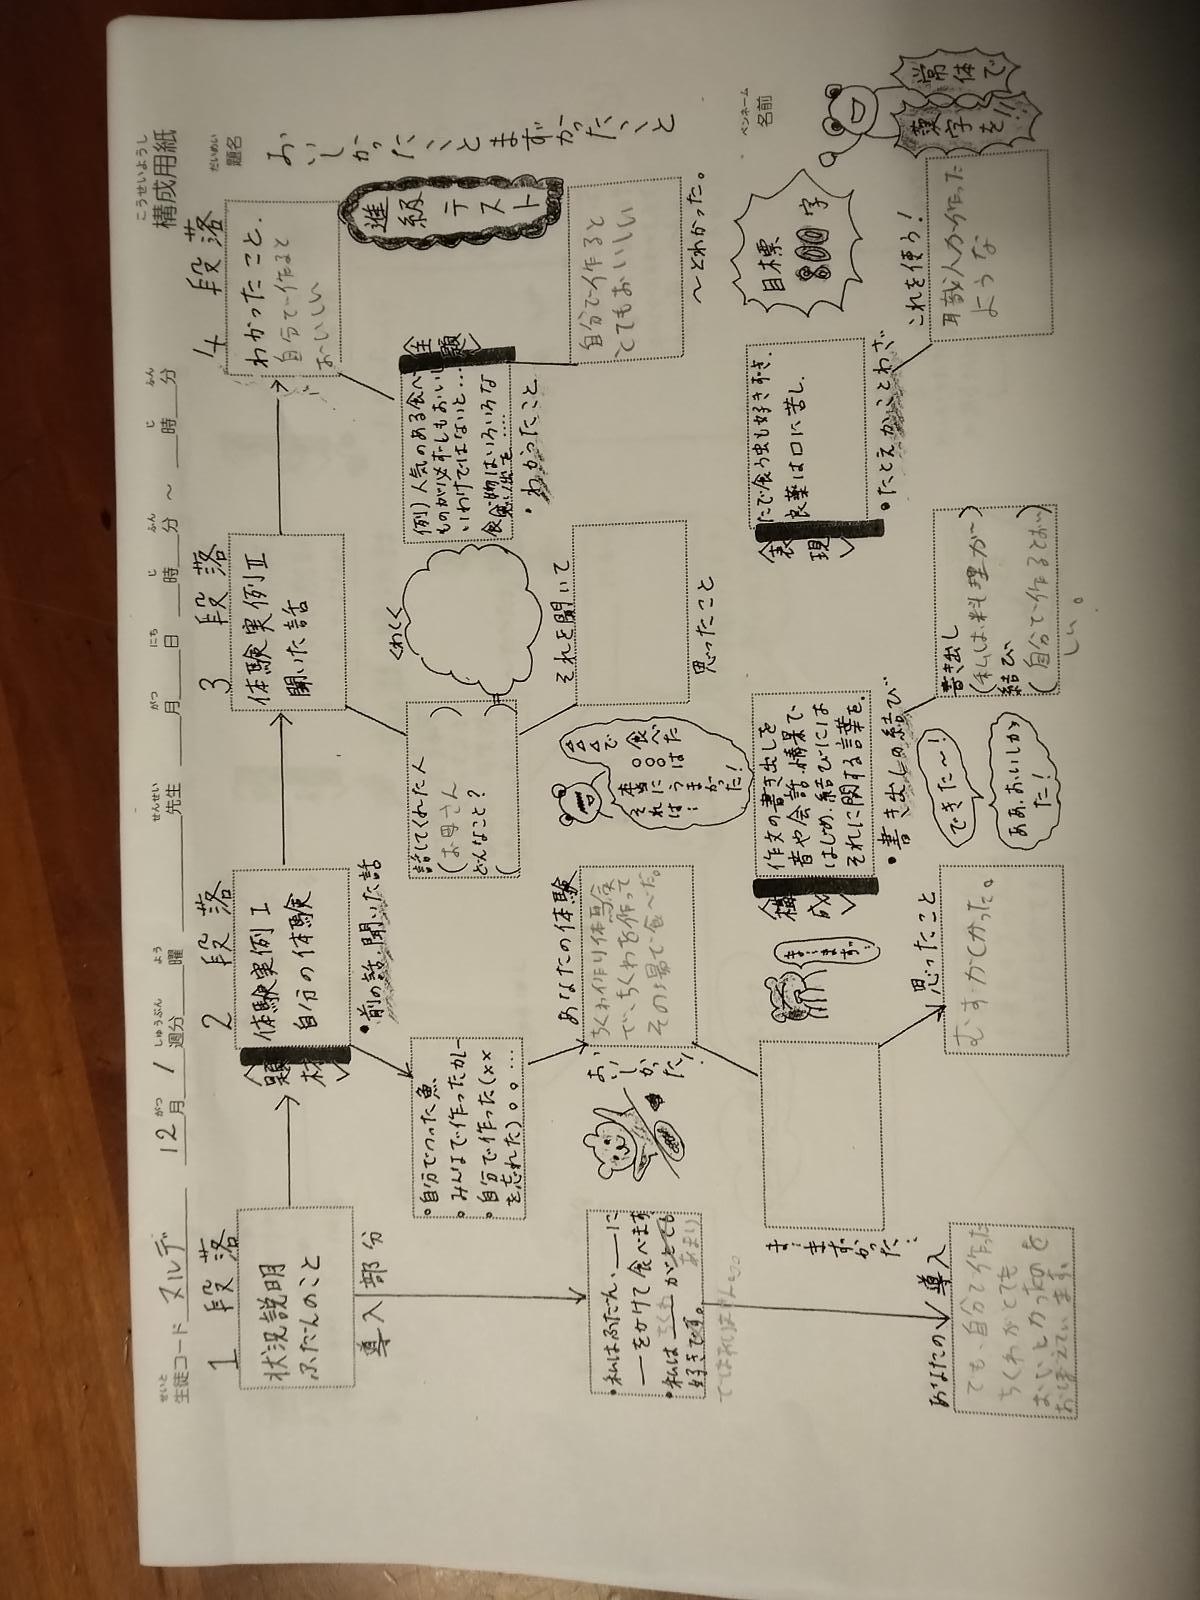 こうせいようし
構成用紙
だいめい
題名
おいしかったこととまずかったこと
ペンネーム
名前
せいと
生徒コード ヌルデ 12月 1週分 曜 先生 月 日 時 分 ~ 時 分
がつ しゅうぶん よう せんせい がつ にち じ ふん じ ふん
1段落
状況説明
ふだんのこと
導入部分
・私はふだん、__に
__をかけて食べます。
・私はちくわがとても
あまり
好きです。
ではありません。
あなたの導入
でも、自分で作った
ちくわがとても
おいしかったのを
おぼえています。
2段落
〈題材〉
体験実例Ⅰ
自分の体験
・前の話、聞いた話
・自分でつった魚
・みんなで作ったカレー
・自分で作った(××
を忘れた)。。…
あなたの体験
ちくわ作り体験
で、ちくわを作って
その場で食べた。
おいしかった!
ま…まずかった…
ま…まず…
思ったこと
むずかしかった。
3段落
体験実例Ⅱ
聞いた話
話してくれた人
(お母さん )
どんなこと?
( )
くわしく
それを聞いて
思ったこと
△△△で
○○○食べた
本当に
それはうまかった!
〈構成〉
作文の書き出しを
音や会話、情景で、
はじめ、結びには
それに関する言葉を。
・書き出しの結び
書き出し
(私は料理が~)
結び
(自分で作るとおい)
しい。
できた~!
ああ、おいしかった!
4段落
わかったこと。
自分で作ると
おいしい
進級テスト
〈主題〉
例)人気のある食べ
ものが必ずしもおいし
いわけではないと…
食べ物はいろいろな
思い出を……
・わかったこと
自分で作ると
とてもおいしい
~とわかった。
目標
800字
〈表現〉
たで食う虫も好き好き。
良薬は口に苦し。
・たとえかことわざ
これを使う!
職人が作った
ような
常体で
漢字を!!